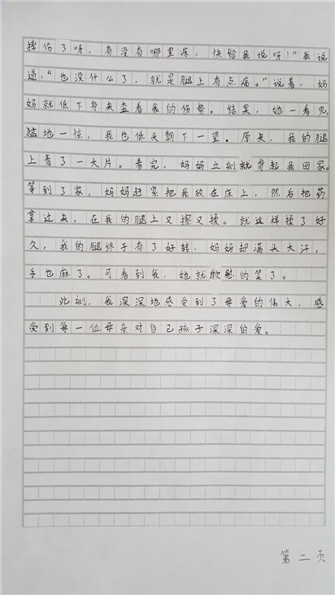 摔伤了呀，有没有哪里疼，快给我说呀！”我说
道：“也没什么了，就是腿上有点痛。”说着，妈
妈就低下身来查看我的伤势。结果，她一看见
猛地一惊，我也低头翻下一望。原来，我的腿
上青了一大片。看完，妈妈立刻就背起我回家。
等到了家，妈妈赶紧把我放在床上，然后把药
拿过来，在我的腿上又擦又揉。就这样揉了好
久，我的腿终于有了好转，妈妈却满头大汗，
手也麻了。可看到我，她就欣慰的笑了。
此刻，我深深地感受到了母爱的伟大，感
受到每一位母亲对自己孩子深深的爱。
第二页